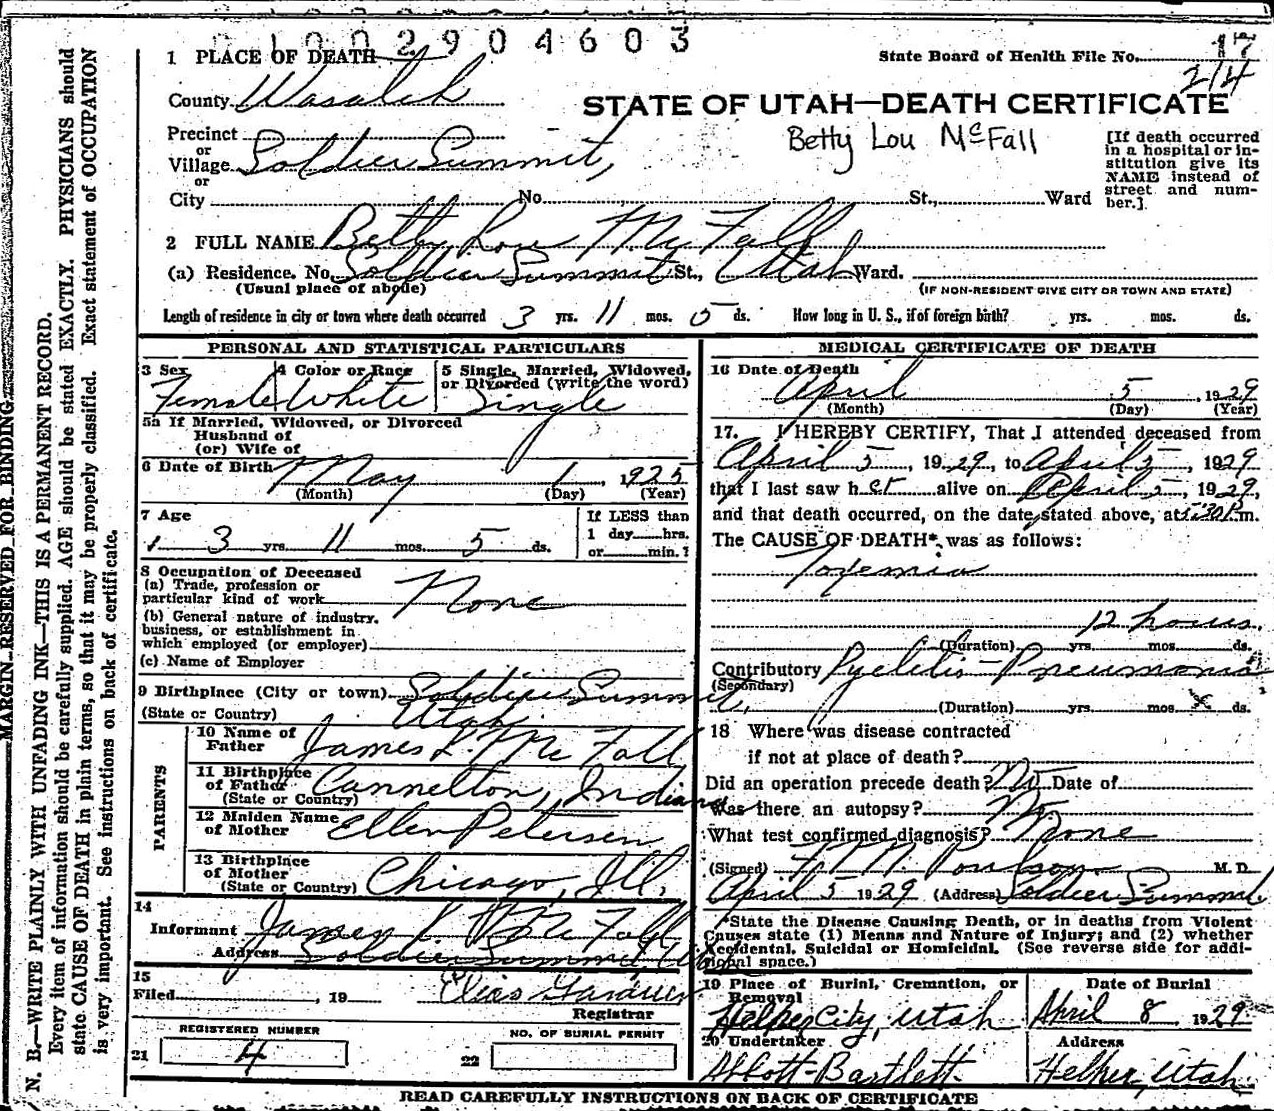 1002904603
1 PLACE OF DEATH
State Board of Health File No. 17
214
County Wasatch
STATE OF UTAH—DEATH CERTIFICATE
Betty Lou McFall
Precinct
or
Village Soldier Summit,
or
City No. St., Ward
[If death occurred
in a hospital or in-
stitution give its
NAME instead of
street and num-
ber.]
2 FULL NAME Betty Lou McFall
(a) Residence. No. Soldier Summit St., Utah Ward.
(Usual place of abode) (IF NON-RESIDENT GIVE CITY OR TOWN AND STATE)
Length of residence in city or town where death occurred 3 yrs. 11 mos. 5 ds. How long in U. S., if of foreign birth? yrs. mos. ds.
PERSONAL AND STATISTICAL PARTICULARS
3 Sex Female
4 Color or Race White
5 Single, Married, Widowed,
or Divorced (write the word)
Single
5a If Married, Widowed, or Divorced
Husband of
(or) Wife of
6 Date of Birth May 1, 1925
(Month) (Day) (Year)
7 Age
3 yrs. 11 mos. 5 ds.
If LESS than
1 day hrs.
or min.?
8 Occupation of Deceased
(a) Trade, profession or
particular kind of work None
(b) General nature of industry,
business, or establishment in
which employed (or employer)
(c) Name of Employer
9 Birthplace (City or town) Soldier Summit,
(State or Country) Utah
PARENTS
10 Name of
Father James L. McFall
11 Birthplace
of Father Cannelton, Indiana
(State or Country)
12 Maiden Name
of Mother Ellen Petersen
13 Birthplace
of Mother Chicago, Ill.
(State or Country)
14
Informant James L. McFall
Address Soldier Summit, Utah
15
Filed , 19 Elias Gardner
Registrar
REGISTERED NUMBER
21 4
NO. OF BURIAL PERMIT
22
MEDICAL CERTIFICATE OF DEATH
16 Date of Death
April 5, 1929
(Month) (Day) (Year)
17. I HEREBY CERTIFY, That I attended deceased from
April 5, 1929, to April 5, 1929
that I last saw her alive on April 5, 1929,
and that death occurred, on the date stated above, at 5:30 P.m.
The CAUSE OF DEATH* was as follows:
Toxemia
12 hours.
(Duration) yrs. mos. ds.
Contributory Pyelitis - Pneumonia
(Secondary)
(Duration) yrs. mos. ds.
18 Where was disease contracted
if not at place of death?
Did an operation precede death? No Date of
Was there an autopsy? No
What test confirmed diagnosis? None
(Signed) Poulson M. D.
April 5 1929 (Address) Soldier Summit
*State the Disease Causing Death, or in deaths from Violent
Causes state (1) Means and Nature of Injury; and (2) whether
Accidental, Suicidal or Homicidal. (See reverse side for addi-
tional space.)
19 Place of Burial, Cremation, or
Removal
Helper City, Utah
Date of Burial
April 8 1929
20 Undertaker
Abbott-Bartlett
Address
Helper, Utah
READ CAREFULLY INSTRUCTIONS ON BACK OF CERTIFICATE
MARGIN RESERVED FOR BINDING
N. B.—WRITE PLAINLY WITH UNFADING INK—THIS IS A PERMANENT RECORD.
Every item of information should be carefully supplied. AGE should be stated EXACTLY. PHYSICIANS should
state CAUSE OF DEATH in plain terms, so that it may be properly classified. Exact statement of OCCUPATION
is very important. See instructions on back of certificate.